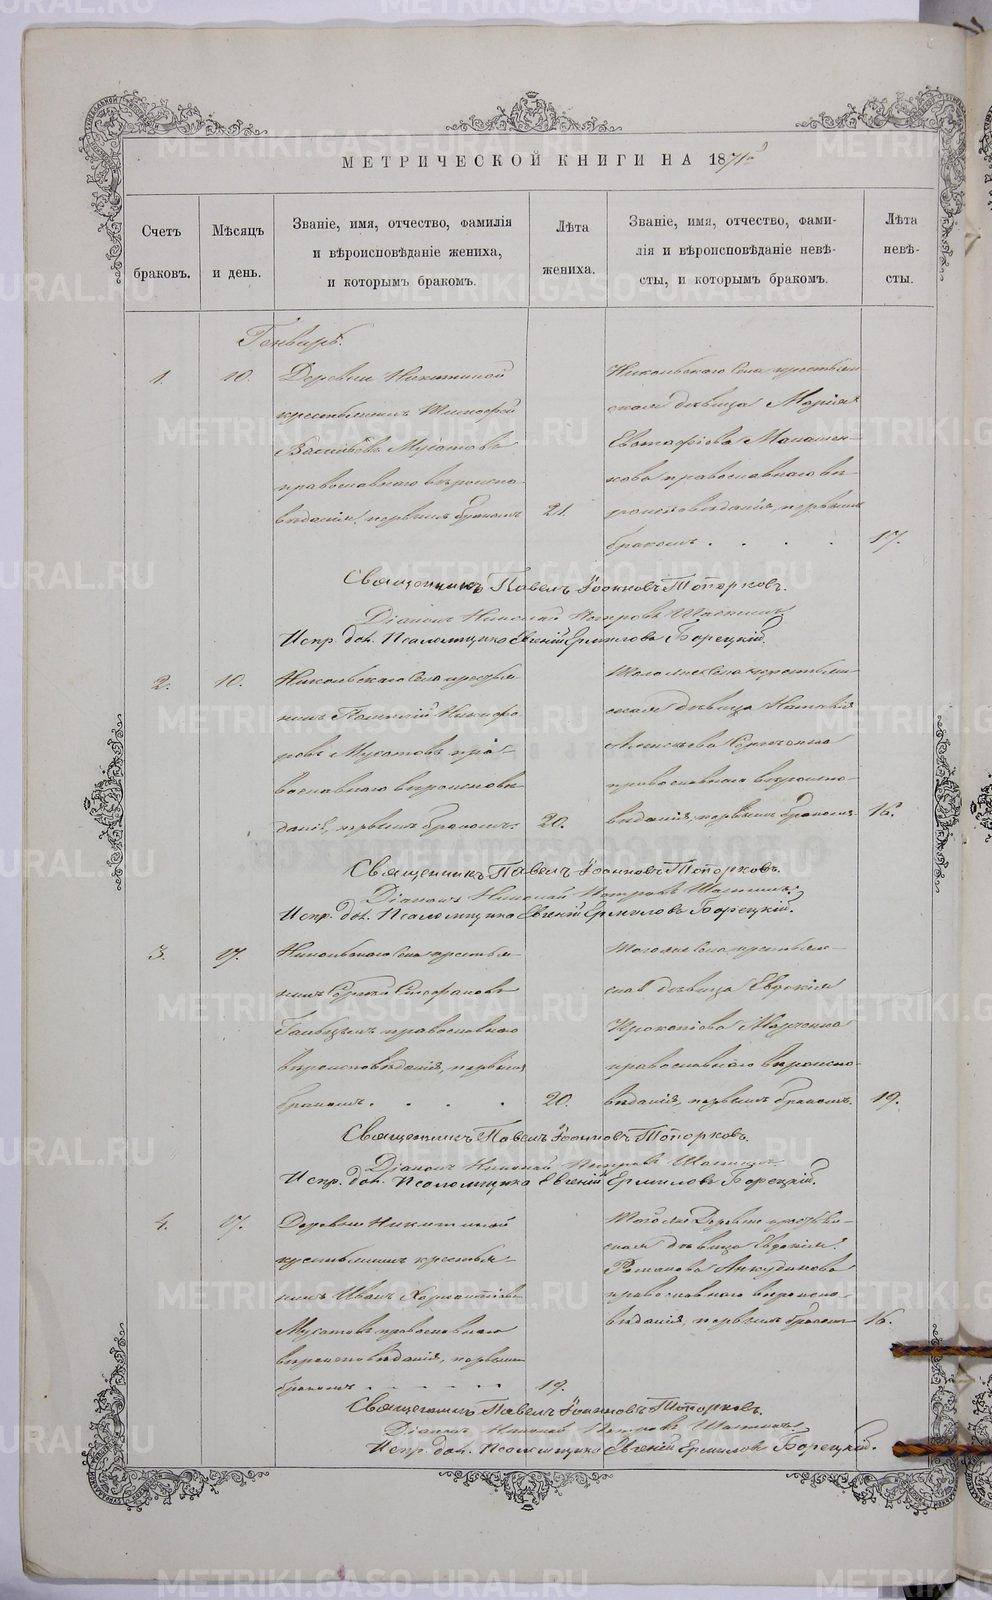 МЕТРИЧЕСКОЙ КНИГИ НА 1871й
Счетъ браковъ.
Мѣсяцъ и день.
Званіе, имя, отчество, фамилія
и вѣроисповѣданіе жениха,
и которымъ бракомъ.
Лѣта жениха.
Званіе, имя, отчество, фами-
лія и вѣроисповѣданіе невѣ-
сты, и которымъ бракомъ.
Лѣта невѣ-
сты.
Генварь.
1. 10.
Деревни Никитиной
крестьянинъ Тимофей
Васильевъ Мусатовъ
православнаго вѣроиспо-
вѣданія, первымъ бракомъ 21.
Никольскаго села крестьян-
ская дѣвица Марія
Евстафіева
православнаго вѣ-
роисповѣданія, первымъ
бракомъ . . . . 17.
Священникъ Павелъ Іоанновъ Топорковъ.
Діаконъ Николай Петровъ
Испр. дол. Псаломщика Евгеній Ермиловъ Борецкій.
2. 10.
Никольскаго села крестья-
нинъ Никифо-
ровъ Мусатовъ пра-
вославнаго вѣроисповѣ-
данія, первымъ бракомъ. 20.
Того же села крестьян-
ская дѣвица Наталія
Алексѣева
православнаго вѣроиспо-
вѣданія, первымъ бракомъ. 16.
Священникъ Павелъ Іоанновъ Топорковъ.
Діаконъ Николай Петровъ
Испр. дол. Псаломщика Евгеній Ермиловъ Борецкій.
3. 17.
Никольскаго села крестья-
нинъ Сергѣй Стефановъ
православнаго
вѣроисповѣданія, первымъ
бракомъ . . . . 20.
Того же села крестьян-
ская дѣвица Евдокія
Прокопіева
православнаго вѣроиспо-
вѣданія, первымъ бракомъ. 19.
Священникъ Павелъ Іоанновъ Топорковъ.
Діаконъ Николай Петровъ
Испр. дол. Псаломщика Евгеній Ермиловъ Борецкій.
4. 17.
Деревни Никитиной
крестья-
нинъ Иванъ
Мусатовъ православнаго
вѣроисповѣданія, первымъ
бракомъ . . . . . 19.
Той же деревни крестьян-
ская дѣвица Евдокія
Романова Анкудинова
православнаго вѣроиспо-
вѣданія, первымъ бракомъ 16.
Священникъ Павелъ Іоанновъ Топорковъ.
Діаконъ Николай Петровъ
Испр. дол. Псаломщика Евгеній Ермиловъ Борецкій.
METRIKI.GASO-URAL.RU